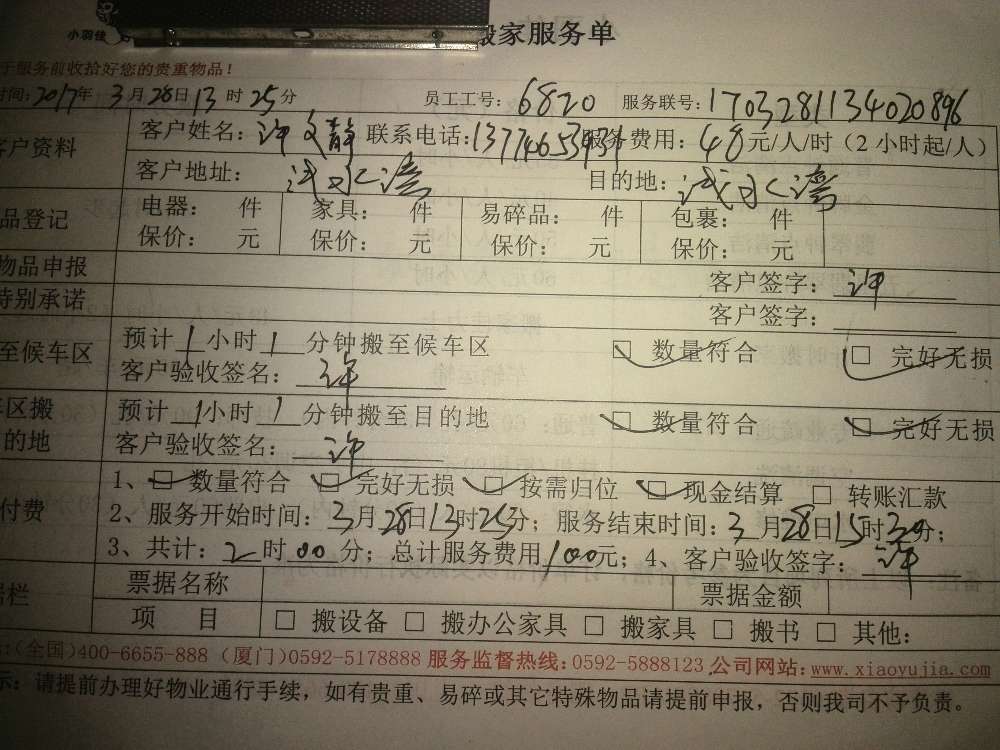 小羽佳
搬家服务单
于服务前收拾好您的贵重物品！
时间:2017年 3月28日13时25分 员工工号:6820 服务联号:17032811134020896
客户资料 客户姓名:许文静 联系电话: 服务费用:48元/人/时（2小时起/人）
客户地址: 目的地:
品登记 电器: 件 家具: 件 易碎品: 件 包裹: 件
保价: 元 保价: 元 保价: 元 保价: 元
物品申报 客户签字:许
特别承诺 客户签字:
至候车区 预计1小时1分钟搬至候车区 ☑ 数量符合 ☑ 完好无损
客户验收签名:许
区搬 预计1小时1分钟搬至目的地 ☑ 数量符合 ☑ 完好无损
的地 客户验收签名:许
付费 1、☑ 数量符合 ☑ 完好无损 ☑ 按需归位 ☑ 现金结算 □ 转账汇款
2、服务开始时间:3月28日13时25分；服务结束时间:3月28日15时30分；
3、共计:2时00分；总计服务费用100元；4、客户验收签字:许
栏 票据名称 票据金额
项 目 □ 搬设备 □ 搬办公家具 □ 搬家具 □ 搬书 □ 其他:
:(全国)400-6655-888 (厦门)0592-5178888 服务监督热线:0592-5888123 公司网站:www.xiaoyujia.com
示: 请提前办理好物业通行手续，如有贵重、易碎或其它特殊物品请提前申报，否则我司不予负责。